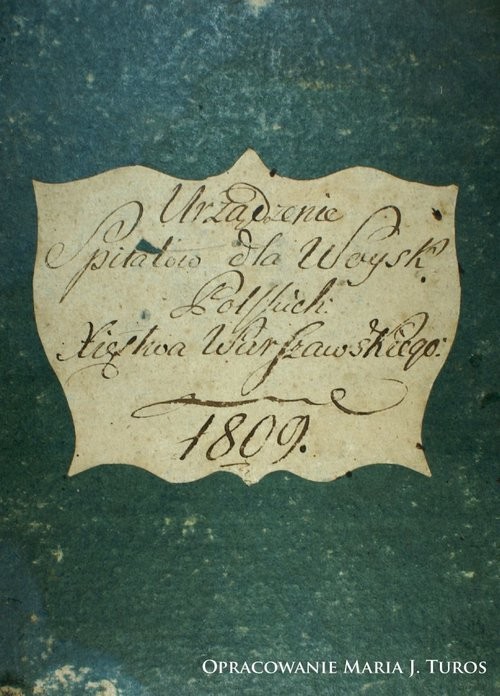 Urządzenie
Spitalów dla Woysk
Polskich
Xięstwa Warszawskiego:
1809.
OPRACOWANIE MARIA J. TUROS